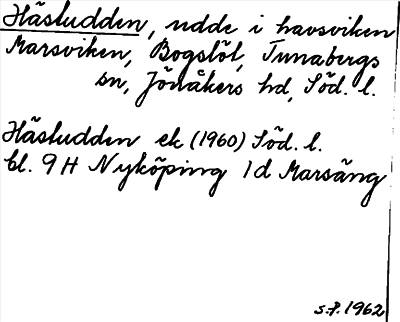 Hästudden, udde i havsviken
Marsviken, Bogslöt, Tunabergs
sn, Jönåkers hd, Söd. l.
Hästudden ek (1960) Söd. l.
bl. 9H Nyköping 1d Marsäng
S.P. 1962